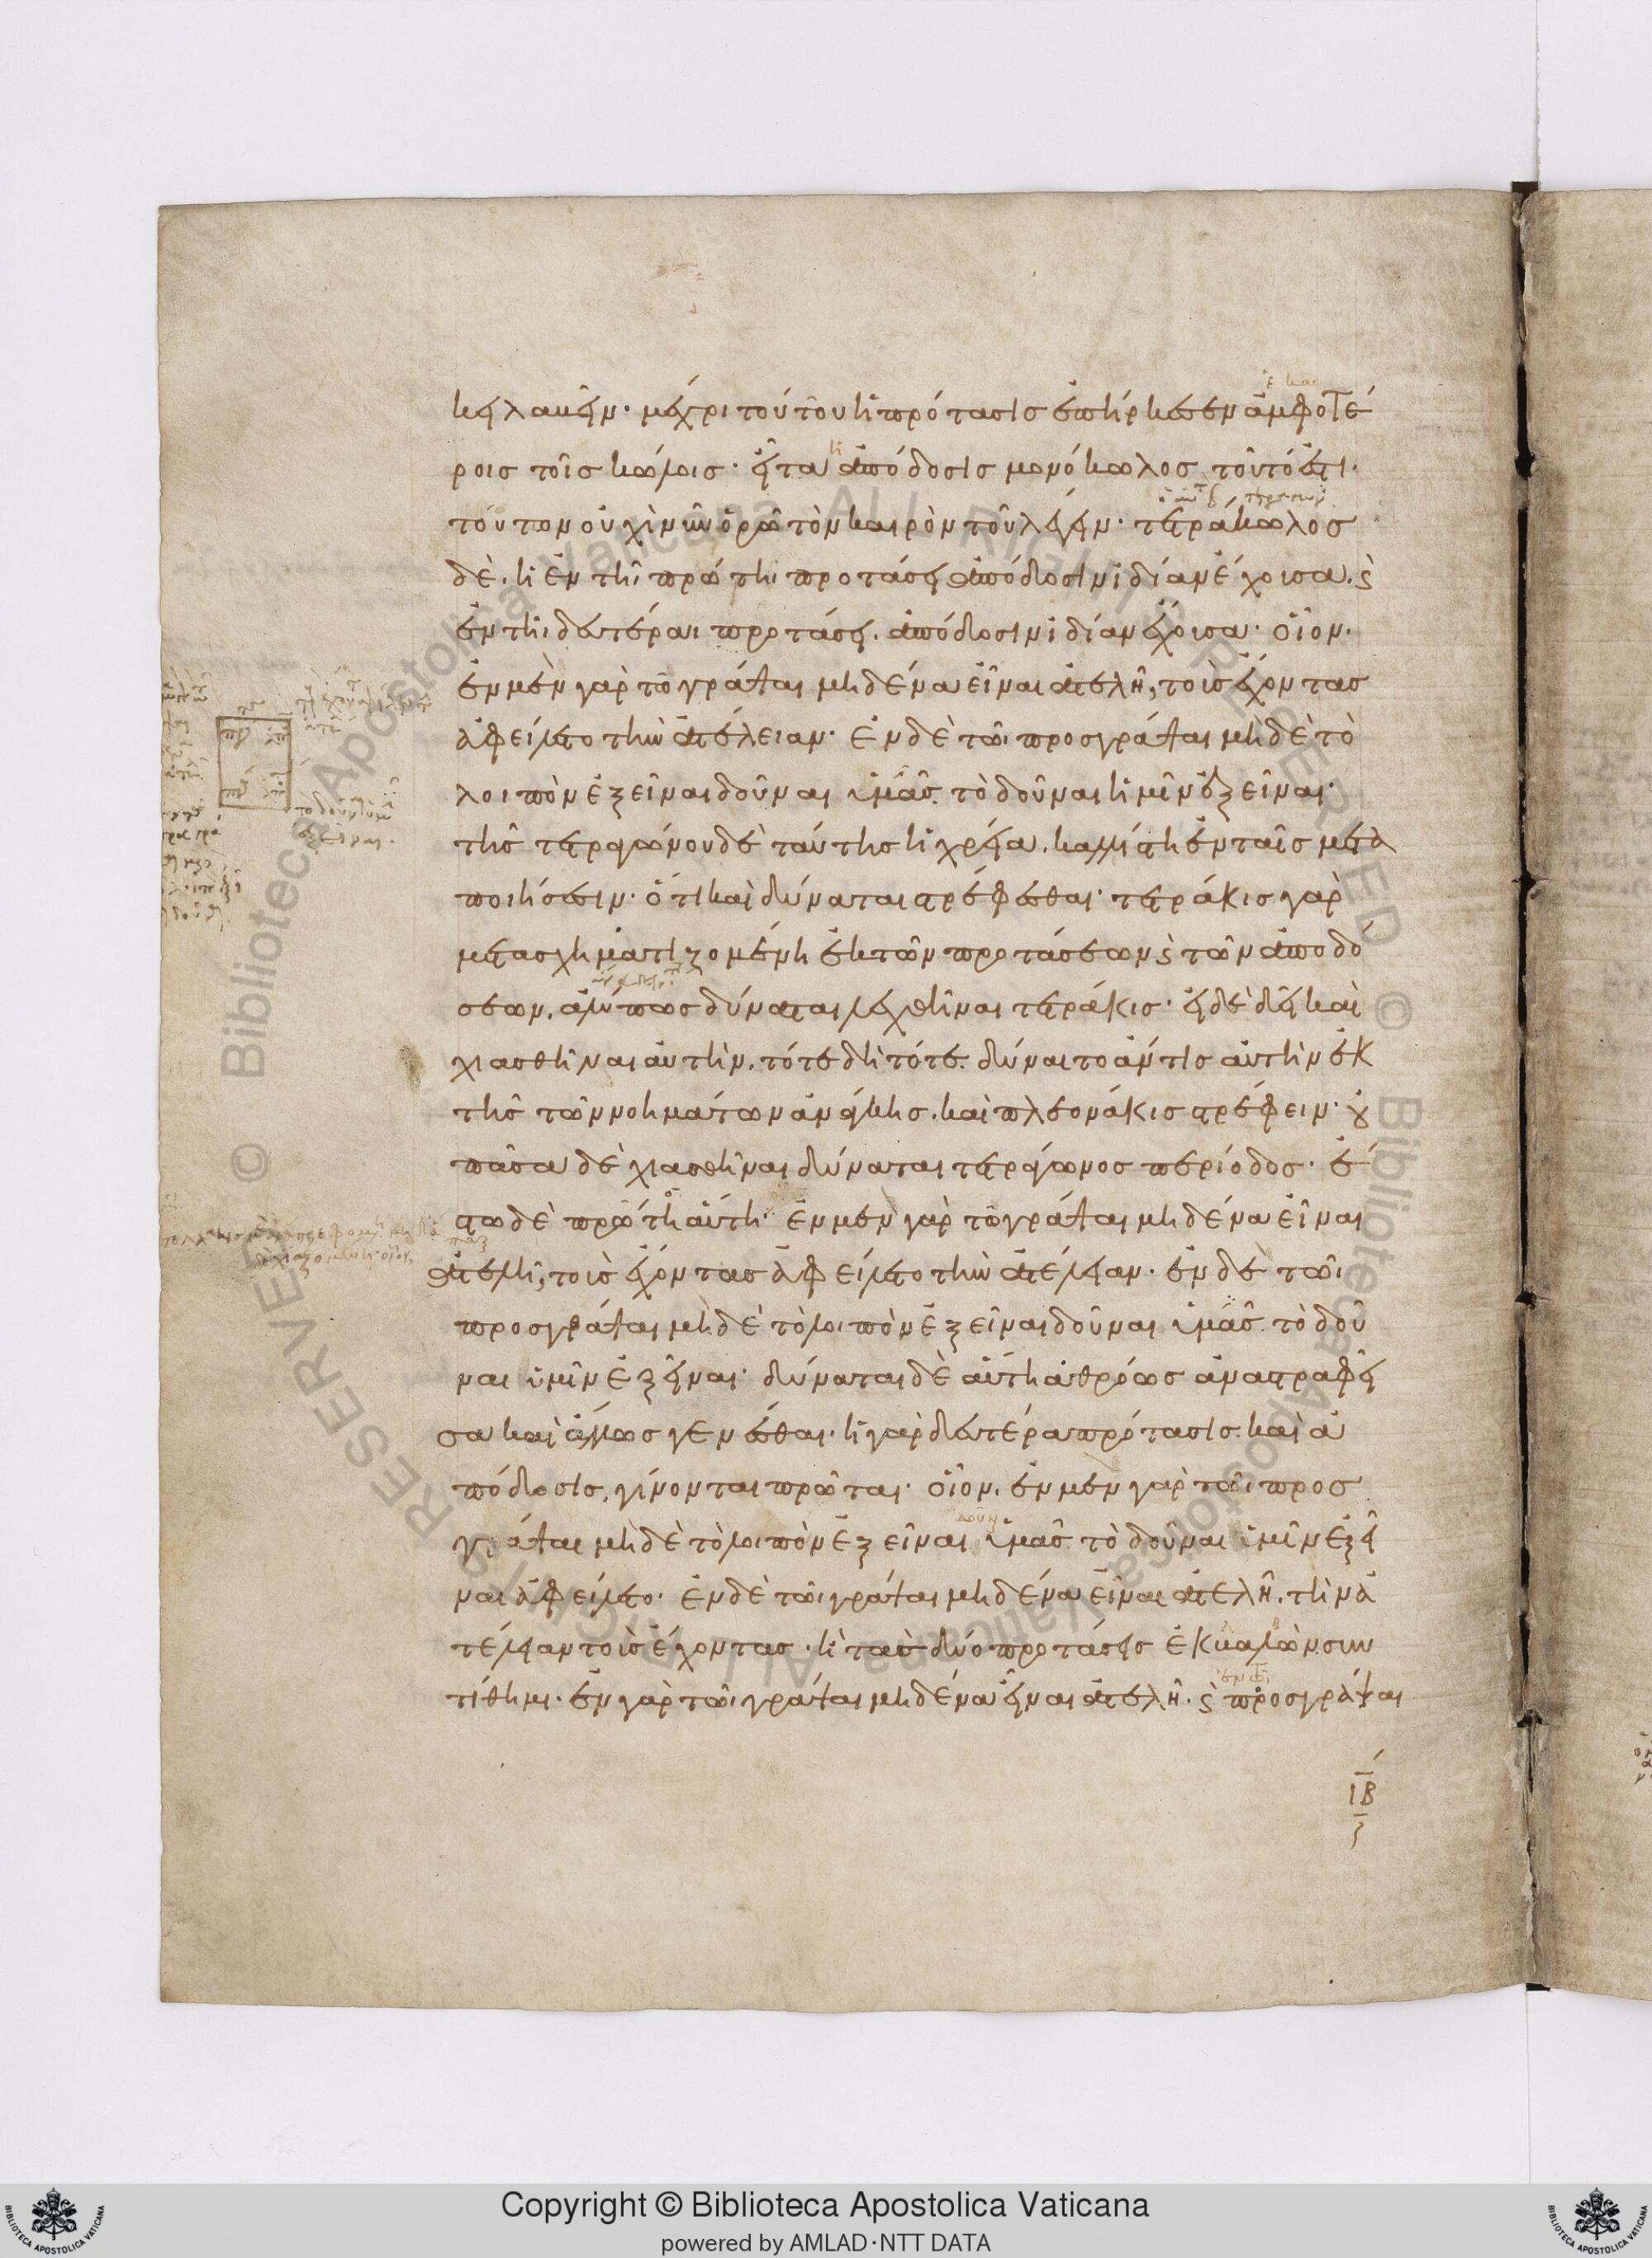 κῃλακεῖν· μέχρι τούτου ἡ πρότασις ἐπήρκεσεν ἀμφοτέ
ροις τοῖς κώλοις· εἶτα ἡ ἀπόδοσις μονόκωλος τουτέστι·
τοῦτον οὐχὶ νῦν ὁρῶ τὸν καιρὸν τοῦ λέγειν· τετράκωλος
δὲ. ἡ ἐν τῆι πρώτηι προτάσει ἀπόδοσιν ἰδίαν ἔχουσα. ϛ
ἐν τῆι δευτέραι προτάσει. ἀπόδοσιν ἰδίαν ἔχουσα· οἷον·
ἐν μὲν γὰρ τῶ γράψαι μηδένα εἶναι ἀτελῆ, τοὺς ἔχοντας
ἀφείλετο τὴν ἀτέλειαν· ἐν δὲ τῶι προσγράψαι μηδὲ τὸ
λοιπὸν ἐξεῖναι δοῦναι ὑμᾶς. τὸ δοῦναι ὑμῖν ἐξεῖναι·
τῆς τετραγώνου δὲ ταύτης ἡ χρεία. καλλίστη ἐν ταῖς μελέ
ποιήσεσιν· ὅτι καὶ δύναται στρέφεσθαι· τετράκις γὰρ
μετασχηματιζομένη ἐκ τῶν προτάσεων ϛ τῶν ἀποδό
σεων. ἀλύπως δύναται λεχθῆναι τετράκις· εἰ δὲ δεῖ καὶ
χιασθῆναι αὐτὴν. τότε δὴ τότε. δύναιτο ἄν τις αὐτὴν ἐκ
τῆς τῶν νοημάτων ἀνάγκης. καὶ πλεονάκις στρέφειν· οὐ
πᾶσα δὲ χιασθῆναι δύναται τετράγωνος περίοδος· ἔ
στω δὲ πρώτη αὕτη· ἐν μὲν γὰρ τῶ γράψαι μηδένα εἶναι
ἀτελῆ, τοὺς ἔχοντας ἀφείλετο τὴν ἀτέλειαν· ἐν δὲ τῶι
προσγράψαι μὴ δὲ τὸ λοιπὸν ἐξεῖναι δοῦναι ὑμᾶς. τὸ δοῦ
ναι ὑμῖν ἐξεῖναι· δύναται δὲ αὕτη ἀθρόως ἀναστραφεῖ
σα καὶ ἄλλως γενέσθαι· ἡ γὰρ δευτέρα πρότασις. καὶ ἀ
πόδοσις, γίνονται πρῶται· οἷον. ἐν μὲν γὰρ τῶι προσ
γράψαι μὴ δὲ τὸ λοιπὸν ἐξεῖναι ὑμᾶς. τὸ δοῦναι ὑμῖν ἐξεῖ
ναι ἀφείλετο· ἐν δὲ τῶι γράψαι μηδένα εἶναι ἀτελῆ. τὴν ἀ
τέλειαν τοὺς ἔχοντας· ἢ τὰς δύο προτάσεις ἐκ καλῶν συν
τίθημι· ἐν γὰρ τῶι γράψαι μηδένα εἶναι ἀτελῆ. ϛ προσγράψαι
ΙΒ
Copyright © Biblioteca Apostolica Vaticana
powered by AMLAD·NTT DATA